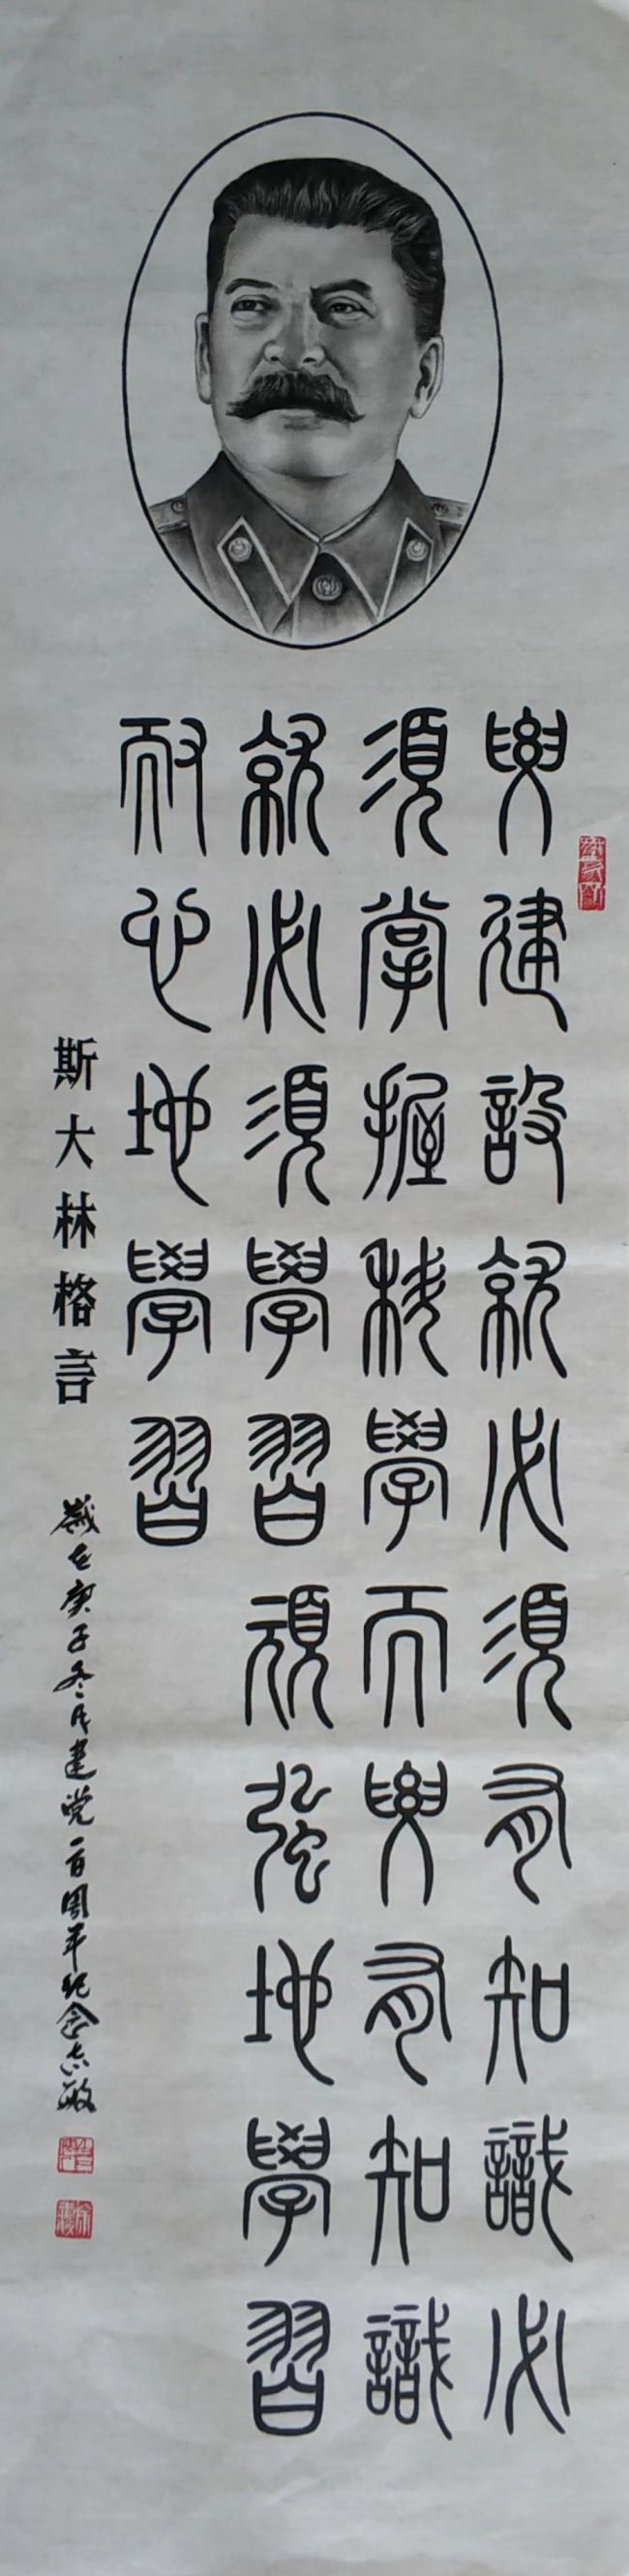 要建設就必須有知識必
須掌握科學而要有知識
就必須學習頑強地學習
耐心地學習
斯大林格言
歲在庚子冬月建党一百周年纪念志敏